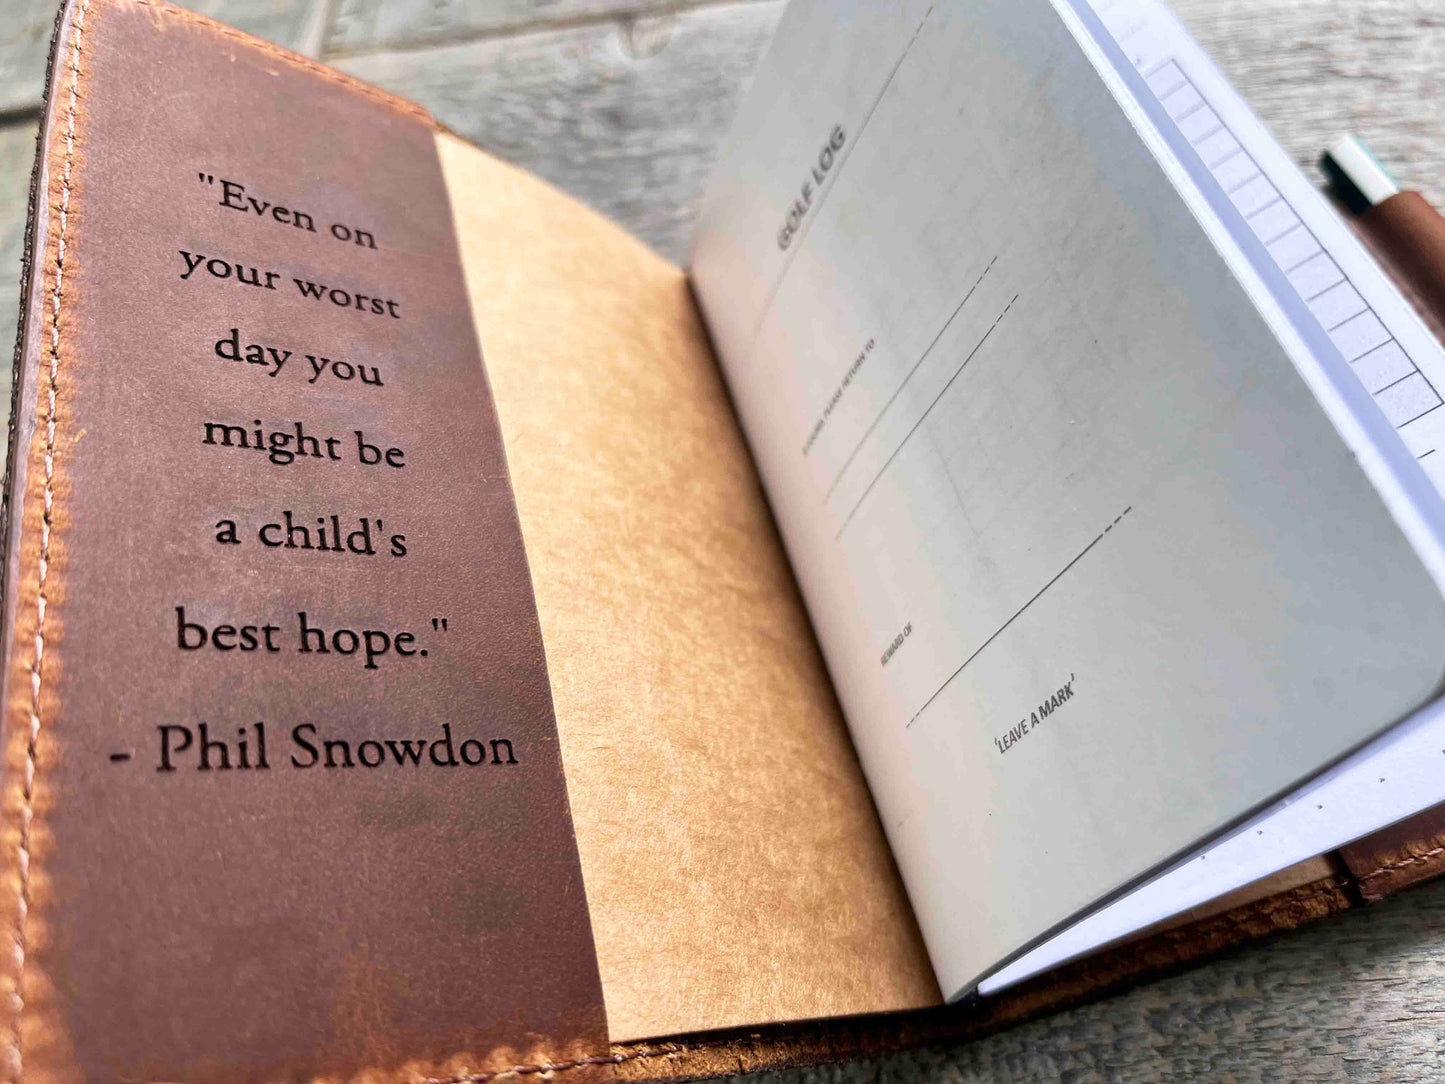 "Even on
your worst
day you
might be
a child's
best hope."
- Phil Snowdon
GOLF LOG
IF FOUND, PLEASE RETURN TO
REWARD OF
'LEAVE A MARK'